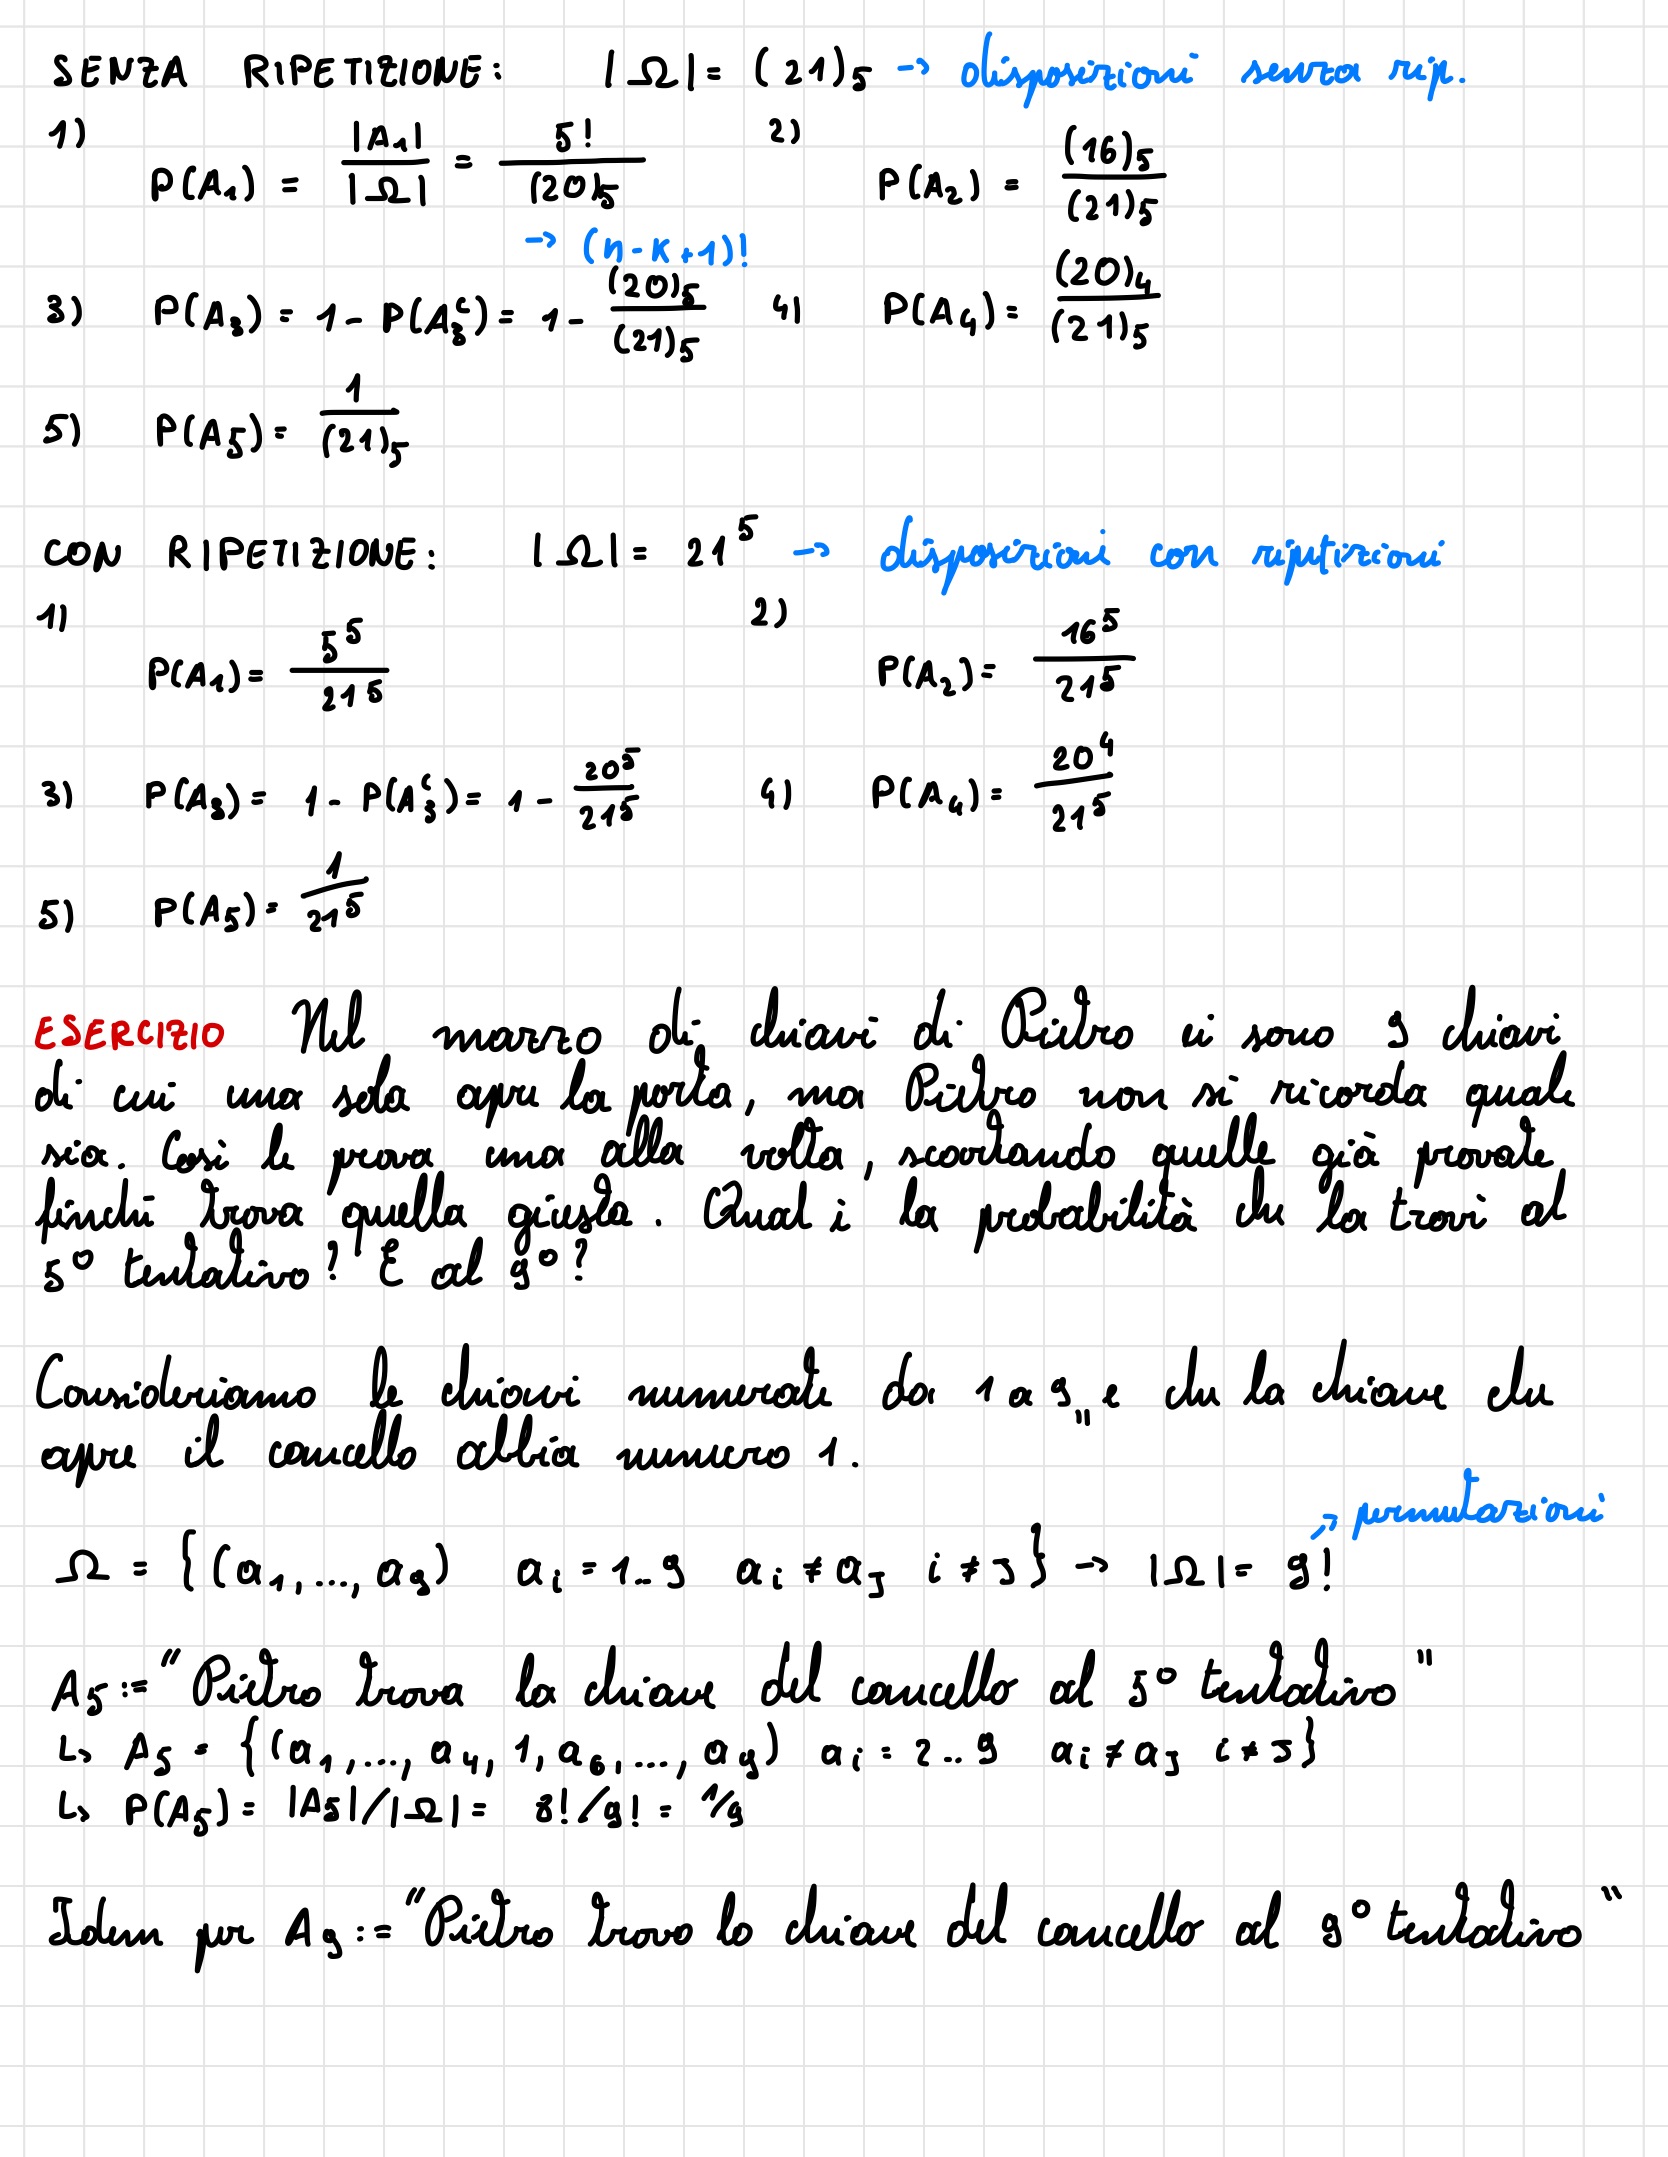 SENZA RIPETIZIONE: |Ω| = (21)₅ → disposizioni senza rip.
1) P(A₁) = |A₁|/|Ω| = 5!/(20)₅ 2) P(A₂) = (16)₅/(21)₅
→ (n-k+1)!
3) P(A₃) = 1 - P(A₃ᶜ) = 1 - (20)₅/(21)₅ 4) P(A₄) = (20)₄/(21)₅
5) P(A₅) = 1/(21)₅
CON RIPETIZIONE: |Ω| = 21⁵ → disposizioni con ripetizioni
1) P(A₁) = 5⁵/21⁵ 2) P(A₂) = 16⁵/21⁵
3) P(A₃) = 1 - P(A₃ᶜ) = 1 - 20⁵/21⁵ 4) P(A₄) = 20⁴/21⁵
5) P(A₅) = 1/21⁵
ESERCIZIO Nel mazzo di chiavi di Pietro ci sono 9 chiavi
di cui una sola apre la porta, ma Pietro non si ricorda quale
sia. Così le prova una alla volta, scartando quelle già provate
finché trova quella giusta. Qual è la probabilità che la trovi al
5° tentativo? E al 9°?
Consideriamo le chiavi numerate da 1 a 9 " e che la chiave che
apre il cancello abbia numero 1.
→ permutazioni
Ω = {(a₁,..., a₉) aᵢ = 1..9 aᵢ ≠ aⱼ i ≠ j} → |Ω| = 9!
A₅ := "Pietro trova la chiave del cancello al 5° tentativo"
↳ A₅ = {(a₁,..., a₄, 1, a₆,..., a₉) aᵢ = 2..9 aᵢ ≠ aⱼ i ≠ j}
↳ P(A₅) = |A₅|/|Ω| = 8!/9! = 1/9
Idem per A₉ := "Pietro trova la chiave del cancello al 9° tentativo"